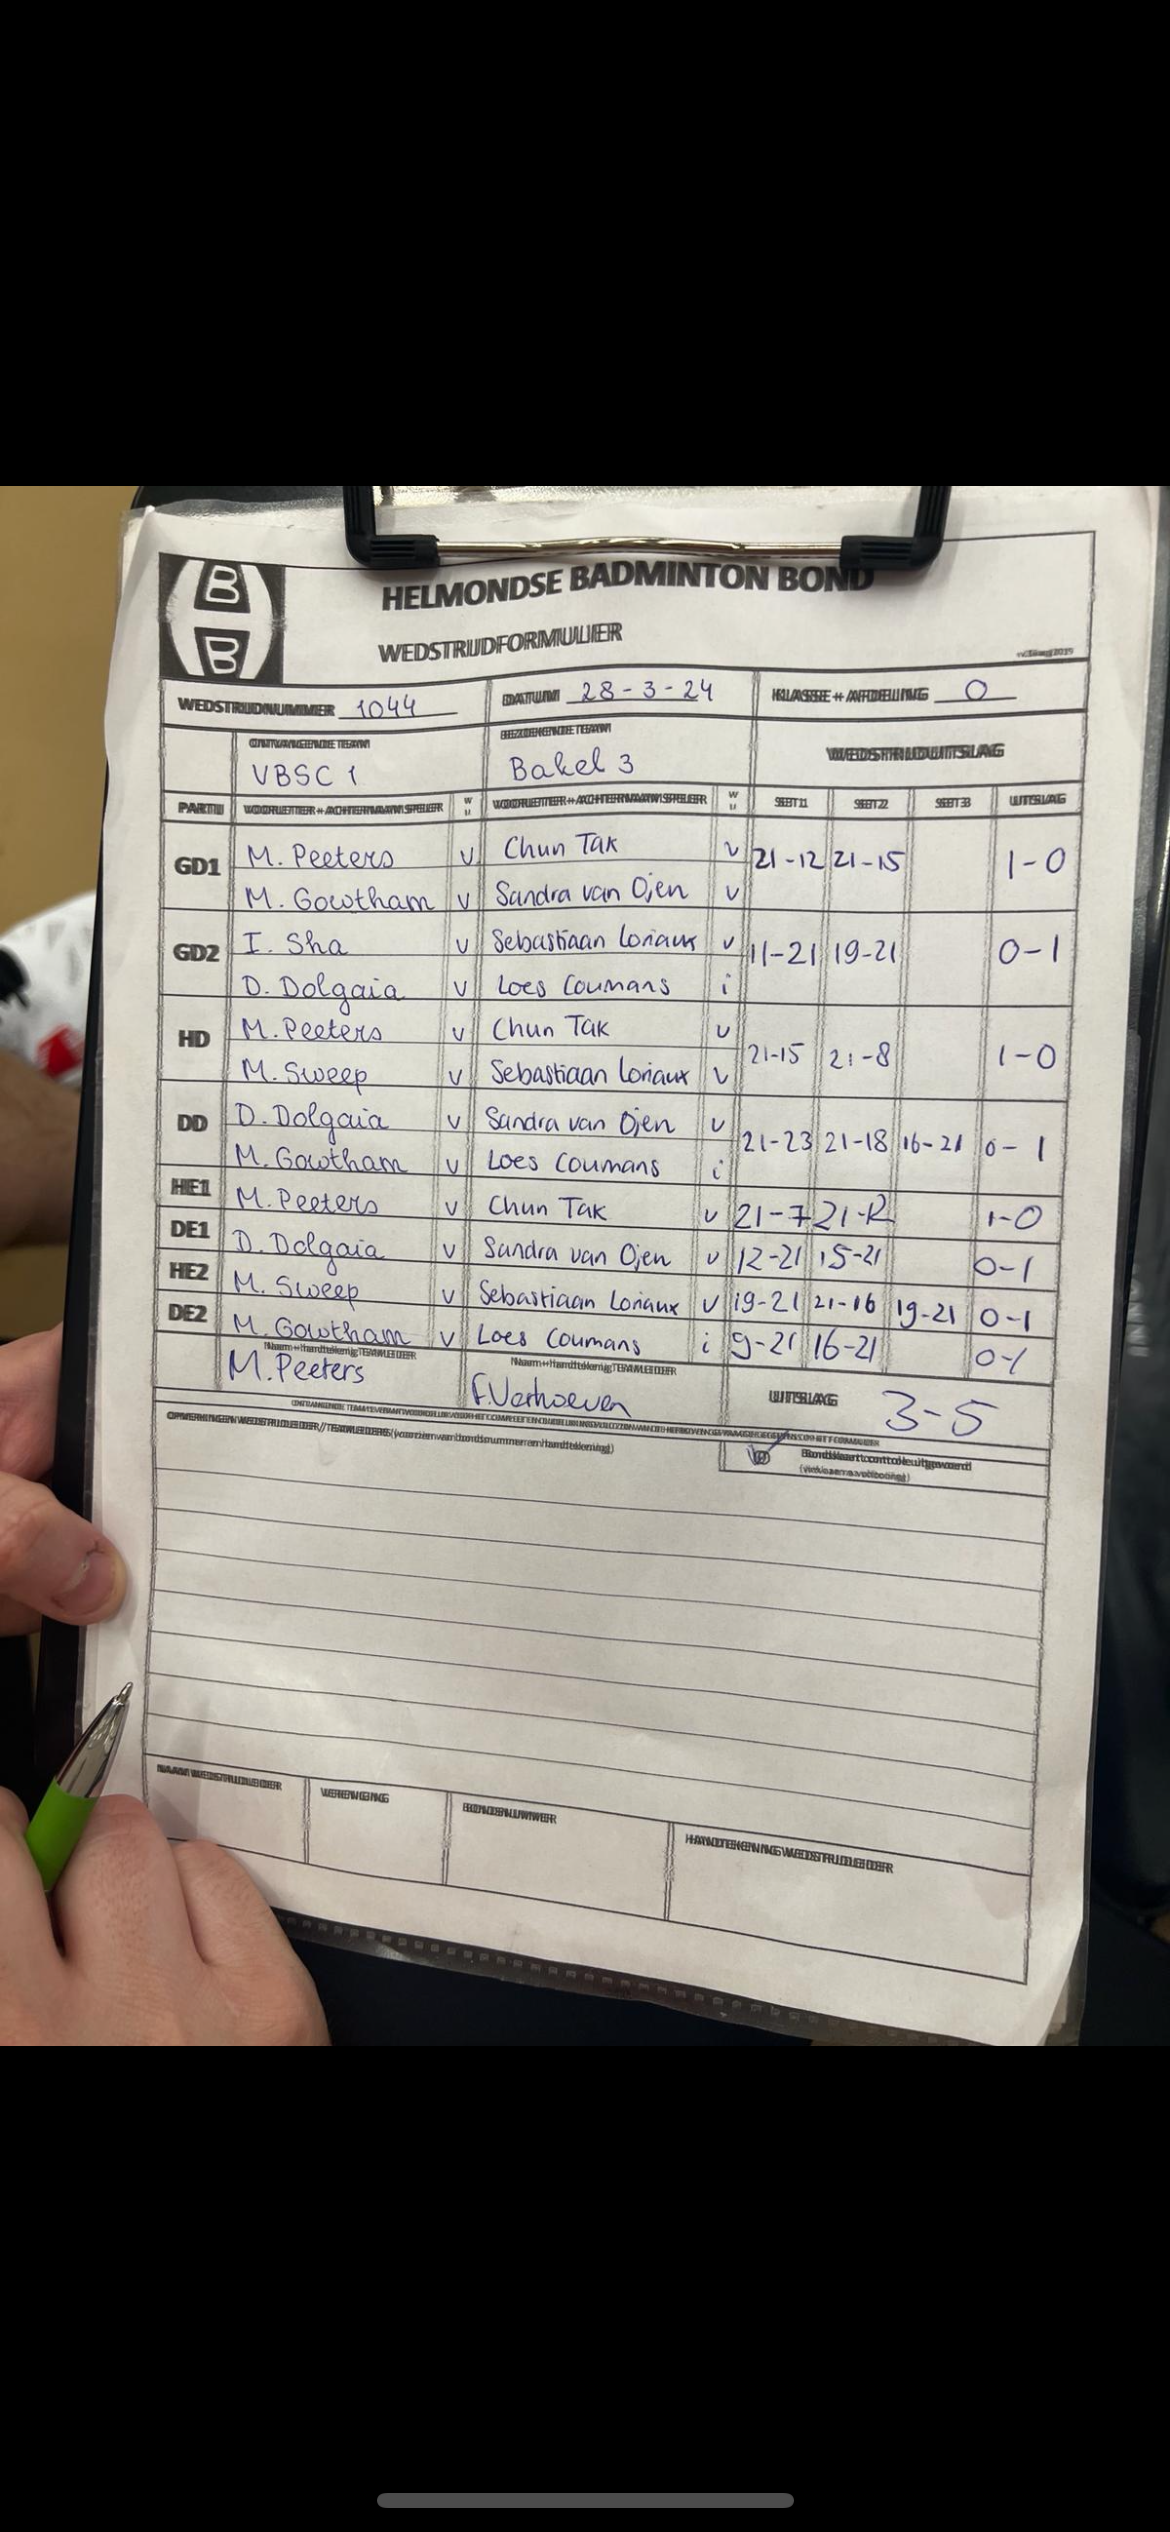 B
B
HELMONDSE BADMINTON BOND
WEDSTRIJDFORMULIER
WEDSTRIJDNUMMER 1044 DATUM 28-3-24 KLASSE + AFDELING 0
ONTVANGENDE TEAM BEZOEKENDE TEAM WEDSTRIJDUITSLAG
VBSC 1 Bakel 3
PARTIJ VOORLETTER + ACHTERNAAM SPELER W VOORLETTER + ACHTERNAAM SPELER W SET 1 SET 2 SET 3 UITSLAG
GD1 M. Peeters v Chun Tak v 21-12 21-15 1-0
M. Gowtham v Sandra van Ojen v
GD2 I. Sha v Sebastiaan Loriaux v 11-21 19-21 0-1
D. Dolgaia v Loes Coumans i
HD M. Peeters v Chun Tak v 21-15 21-8 1-0
M. Sweep v Sebastiaan Loriaux v
DD D. Dolgaia v Sandra van Ojen v 21-23 21-18 16-21 0-1
M. Gowtham v Loes Coumans i
HE1 M. Peeters v Chun Tak v 21-7 21-12 1-0
DE1 D. Dolgaia v Sandra van Ojen v 12-21 15-21 0-1
HE2 M. Sweep v Sebastiaan Loriaux v 19-21 21-16 19-21 0-1
DE2 M. Gowtham v Loes Coumans i 9-21 16-21 0-1
Naam + Handtekenig TEAMLEIDER Naam + Handtekenig TEAMLEIDER
M. Peeters F. Verhoeven UITSLAG 3-5
OPMERKINGEN WEDSTRIJDLEIDER / TEAMLEIDERS (voorzien van bondsnummer en handtekening)
Bondskaart controle uitgevoerd
NAAM WEDSTRIJDLEIDER VERENIGING BONDSNUMMER HANDTEKENING WEDSTRIJDLEIDER